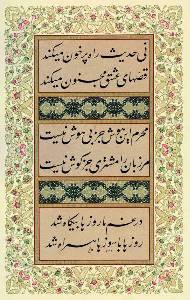 نی حدیث راه پر خون میکند
قصهای عشق مجنون میکند
محرم این هوش جز بیهوش نیست
مر زبان را مشتری جز گوش نیست
در غم ما روزها بیگاه شد
روزها با سوزها همراه شد